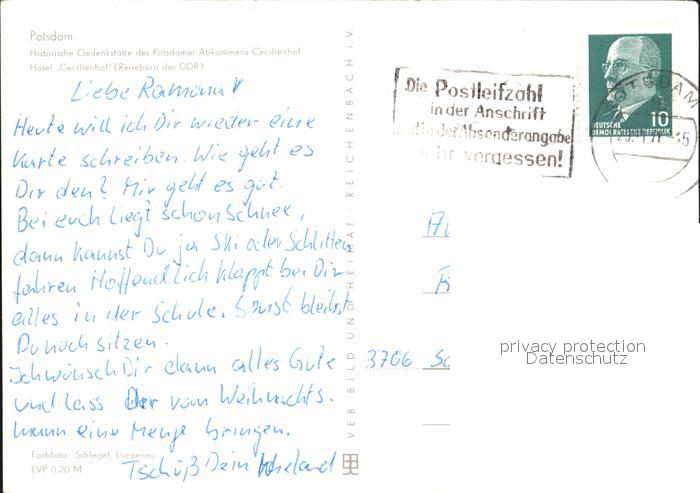 Potsdam
Historische Gedenkstätte des Potsdamer Abkommens Cecilienhof
Hotel „Cecilienhof" (Reisebüro der DDR)
Liebe Ramona!
Heute will ich Dir wieder eine
Karte schreiben. Wie geht es
Dir den? Mir geht es gut.
Bei euch liegt schon Schnee,
dann kannst Du ja Ski oder Schlitten
fahren. Hoffendlich klappt bei Dir
alles in der Schule. Sonst bleibst
Du noch sitzen.
Ich wünsch Dir dann alles Gute
und lass Dir vom Weihnachts-
mann eine Menge bringen.
Tschüß Dein Wieland
Farbfoto: Schlegel, Lunzenau
EVP 0,20 M
VEB BILD UND HEIMAT REICHENBACH i.V.
Die Postleitzahl
in der Anschrift
und in der Absenderangabe
nicht vergessen!
POTSDAM
10
DEUTSCHE
DEMOKRATISCHE REPUBLIK
3706 Sc
privacy protection
Datenschutz